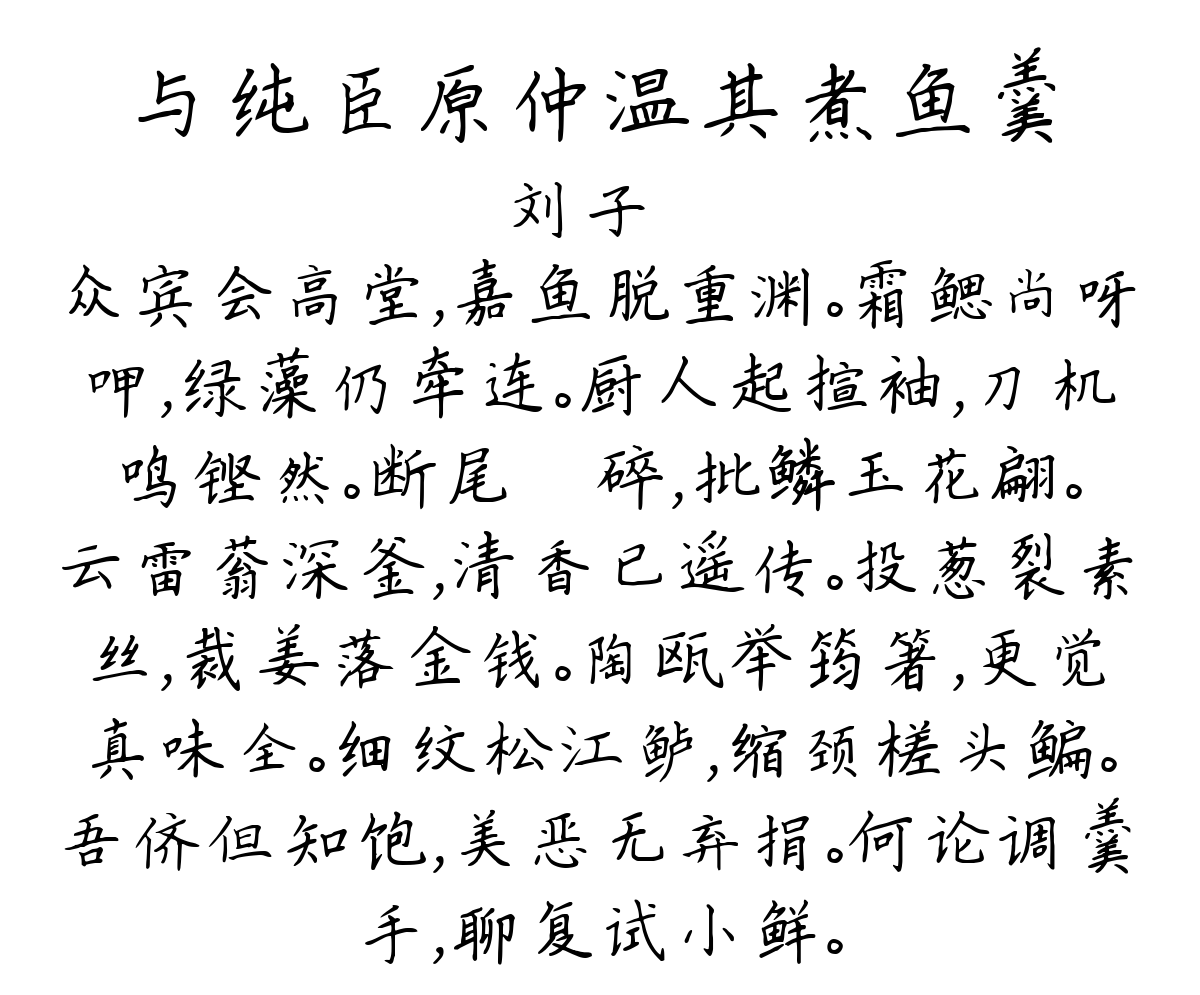 与纯臣原仲温其煮鱼羹
刘子
众宾会高堂,嘉鱼脱重渊。霜鳃尚呀
呷,绿藻仍牵连。厨人起揎袖,刀机
鸣铿然。断尾 碎,批鳞玉花翩。
云雷蓊深釜,清香已遥传。投葱裂素
丝,裁姜落金钱。陶瓯举筠箸,更觉
真味全。细纹松江鲈,缩颈槎头鳊。
吾侪但知饱,美恶无弃捐。何论调羹
手,聊复试小鲜。